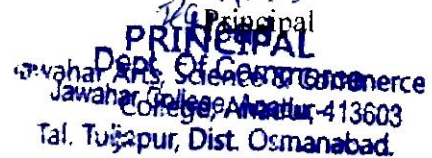 Principal
PRINCIPAL
Dept. Of Commerce
Arts, Science & Commerce
Jawahar College, Anadur
College, Anadur-413603
Tal. Tuljapur, Dist. Osmanabad.